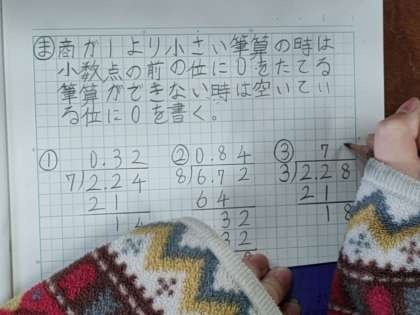 ま 商が1より小さい筆算の時は
小数点の前の位に0をたてる
筆算ができない時は空いてい
る位に0を書く。
① 0.32 ② 0.84 ③ 7
7)2.24 8)6.72 3)2.28
21 64 21
14 32 18
32